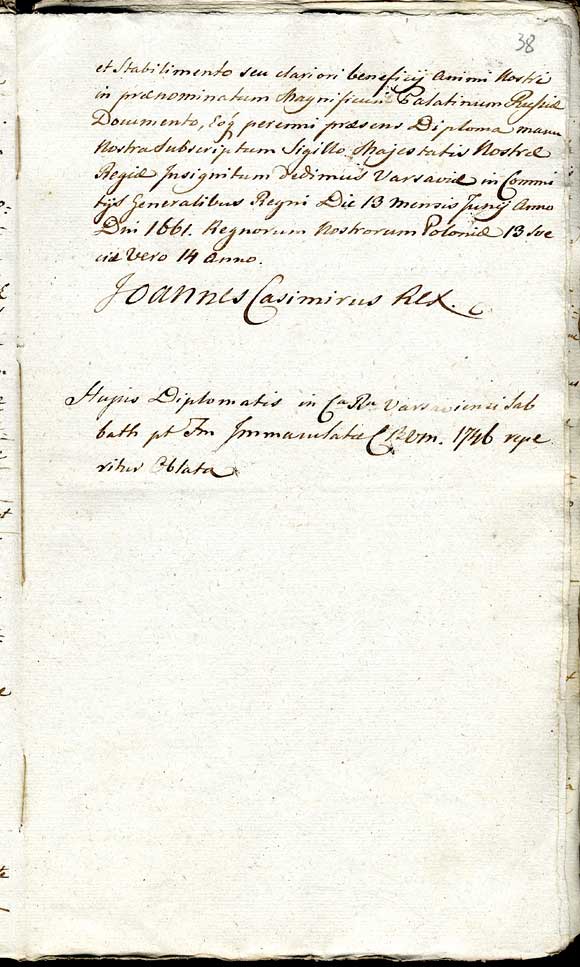 38
et Stabilimento seu clariori beneficij Animi Nostri
in prænominatum Magnificum Palatinum Russiæ
Documento, Eoq perenni præsens Diploma manu
Nostra Subscriptum Sigillo Majestatis Nostræ
Regiæ Insignitum dedimus Varsaviæ in Commi
tijs Generalibus Regni Die 13 mensis Junij Anno
Dni 1661. Regnorum Nostrorum Poloniæ 13 Sve
ciæ Vero 14 Anno.
Joannes Casimirus Rex.
Hujus Diplomatis in Varsaviensi Sab
bath pt Fm Immaculatæ 1746 repe
ritur Oblata